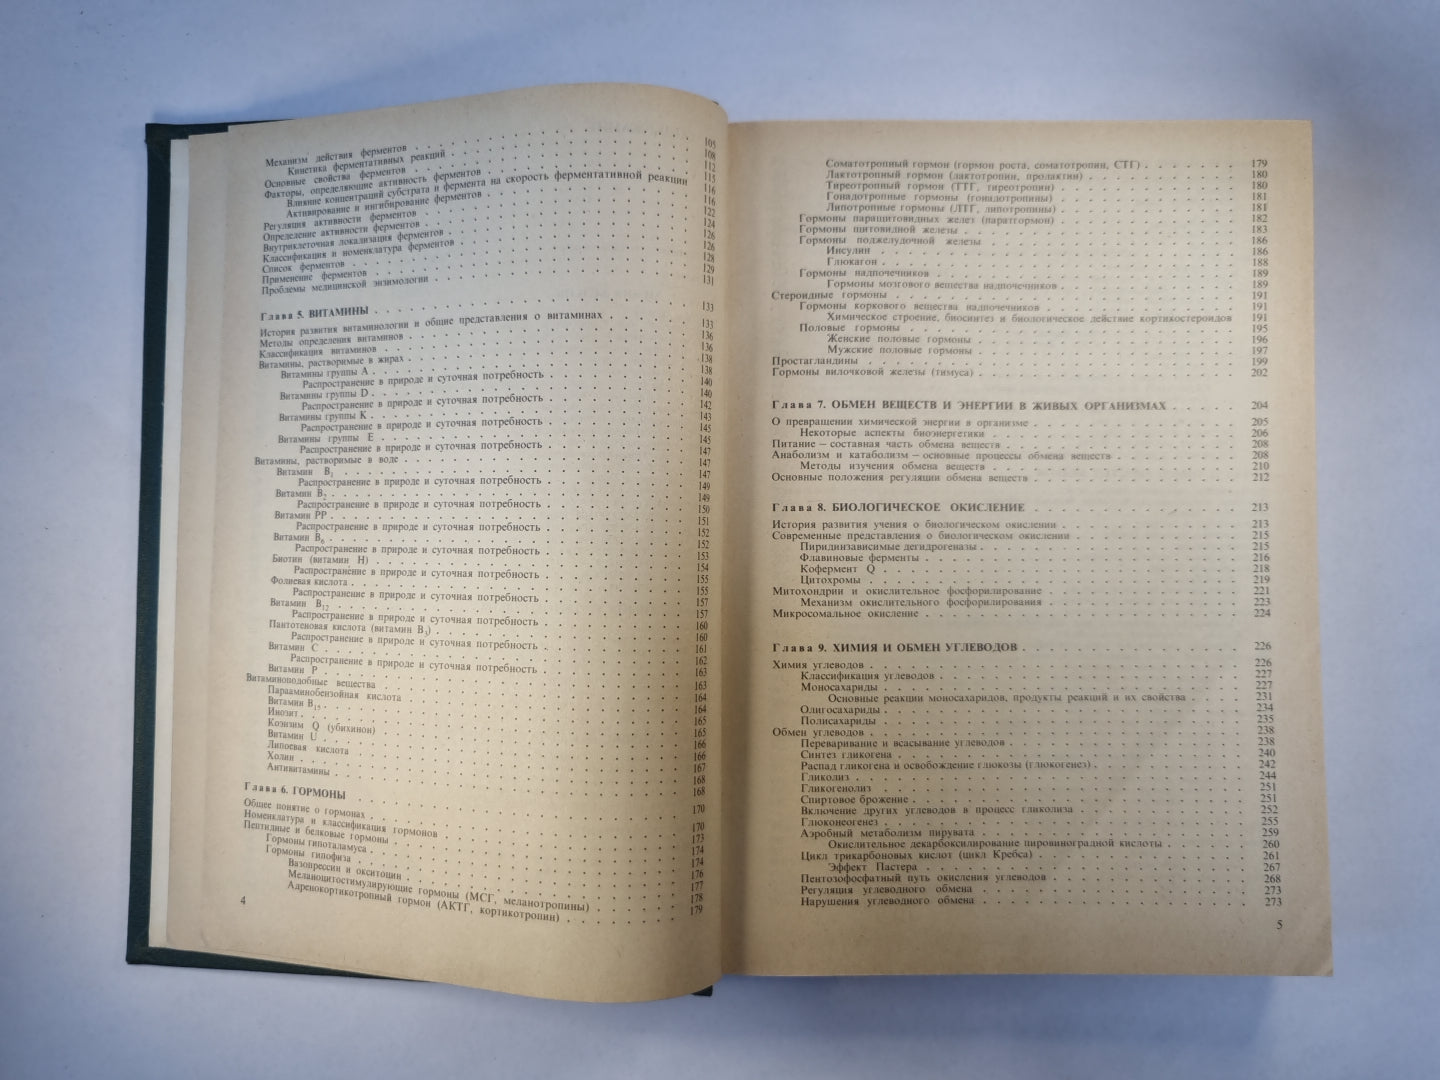 Механизм действия ферментов . . . . . . . . . . 105
Кинетика ферментативных реакций . . . . . . . . . . 108
Основные свойства ферментов . . . . . . . . . . 112
Факторы, определяющие активность ферментов . . . . . . . . . . 115
Влияние концентраций субстрата и фермента на скорость ферментативной реакции 116
Активирование и ингибирование ферментов . . . . . . . . . . 116
Регуляция активности ферментов . . . . . . . . . . 122
Определение активности ферментов . . . . . . . . . . 124
Внутриклеточная локализация ферментов . . . . . . . . . . 126
Классификация и номенклатура ферментов . . . . . . . . . . 126
Список ферментов . . . . . . . . . . 128
Применение ферментов . . . . . . . . . . 129
Проблемы медицинской энзимологии . . . . . . . . . . 131
Глава 5. ВИТАМИНЫ . . . . . . . . . . 133
История развития витаминологии и общие представления о витаминах . . . . . 133
Методы определения витаминов . . . . . . . . . . 136
Классификация витаминов . . . . . . . . . . 136
Витамины, растворимые в жирах . . . . . . . . . . 138
Витамины группы A . . . . . . . . . . 138
Распространение в природе и суточная потребность . . . . . . . 140
Витамины группы D . . . . . . . . . . 140
Распространение в природе и суточная потребность . . . . . . . 142
Витамины группы K . . . . . . . . . . 143
Распространение в природе и суточная потребность . . . . . . . 145
Витамины группы E . . . . . . . . . . 145
Распространение в природе и суточная потребность . . . . . . . 147
Витамины, растворимые в воде . . . . . . . . . . 147
Витамин B1 . . . . . . . . . . 147
Распространение в природе и суточная потребность . . . . . . . 149
Витамин B2 . . . . . . . . . . 149
Распространение в природе и суточная потребность . . . . . . . 150
Витамин PP . . . . . . . . . . 151
Распространение в природе и суточная потребность . . . . . . . 152
Витамин B6 . . . . . . . . . . 152
Распространение в природе и суточная потребность . . . . . . . 153
Биотин (витамин H) . . . . . . . . . . 154
Распространение в природе и суточная потребность . . . . . . . 155
Фолиевая кислота . . . . . . . . . . 155
Распространение в природе и суточная потребность . . . . . . . 157
Витамин B12 . . . . . . . . . . 157
Распространение в природе и суточная потребность . . . . . . . 160
Пантотеновая кислота (витамин B3) . . . . . . . . . . 160
Распространение в природе и суточная потребность . . . . . . . 161
Витамин C . . . . . . . . . . 162
Распространение в природе и суточная потребность . . . . . . . 163
Витамин P . . . . . . . . . . 163
Витаминоподобные вещества . . . . . . . . . . 164
Парааминобензойная кислота . . . . . . . . . . 164
Витамин B15 . . . . . . . . . . 165
Инозит . . . . . . . . . . 165
Коэнзим Q (убихинон) . . . . . . . . . . 166
Витамин U . . . . . . . . . . 166
Липоевая кислота . . . . . . . . . . 167
Холин . . . . . . . . . . 168
Антивитамины . . . . . . . . . . 168
Глава 6. ГОРМОНЫ . . . . . . . . . . 170
Общее понятие о гормонах . . . . . . . . . . 170
Номенклатура и классификация гормонов . . . . . . . . . . 173
Пептидные и белковые гормоны . . . . . . . . . . 174
Гормоны гипоталамуса . . . . . . . . . . 174
Гормоны гипофиза . . . . . . . . . . 176
Вазопрессин и окситоцин . . . . . . . . . . 177
Меланоцитостимулирующие гормоны (МСГ, меланотропины) . . . . . 178
Адренокортикотропный гормон (АКТГ, кортикотропин) . . . . . . 179
4
Соматотропный гормон (гормон роста, соматотропин, СТГ) . . . . . . . 179
Лактотропный гормон (лактотропин, пролактин) . . . . . . . . . . 180
Тиреотропный гормон (ТТГ, тиреотропин) . . . . . . . . . . 180
Гонадотропные гормоны (гонадотропины) . . . . . . . . . . 181
Липотропные гормоны (ЛТГ, липотропины) . . . . . . . . . . 181
Гормоны паращитовидных желез (паратгормон) . . . . . . . . . . 182
Гормоны щитовидной железы . . . . . . . . . . 183
Гормоны поджелудочной железы . . . . . . . . . . 186
Инсулин . . . . . . . . . . 186
Глюкагон . . . . . . . . . . 188
Гормоны надпочечников . . . . . . . . . . 189
Гормоны мозгового вещества надпочечников . . . . . . . . . . 189
Стероидные гормоны . . . . . . . . . . 191
Гормоны коркового вещества надпочечников . . . . . . . . . . 191
Химическое строение, биосинтез и биологическое действие кортикостероидов 191
Половые гормоны . . . . . . . . . . 195
Женские половые гормоны . . . . . . . . . . 196
Мужские половые гормоны . . . . . . . . . . 197
Простагландины . . . . . . . . . . 199
Гормоны вилочковой железы (тимуса) . . . . . . . . . . 202
Глава 7. ОБМЕН ВЕЩЕСТВ И ЭНЕРГИИ В ЖИВЫХ ОРГАНИЗМАХ . . . . . 204
О превращении химической энергии в организме . . . . . . . . . . 205
Некоторые аспекты биоэнергетики . . . . . . . . . . 206
Питание – составная часть обмена веществ . . . . . . . . . . 208
Анаболизм и катаболизм – основные процессы обмена веществ . . . . . . . . . 208
Методы изучения обмена веществ . . . . . . . . . . 210
Основные положения регуляции обмена веществ . . . . . . . . . . 212
Глава 8. БИОЛОГИЧЕСКОЕ ОКИСЛЕНИЕ . . . . . . . . . . 213
История развития учения о биологическом окислении . . . . . . . . . . 213
Современные представления о биологическом окислении . . . . . . . . . . 215
Пиридинзависимые дегидрогеназы . . . . . . . . . . 215
Флавиновые ферменты . . . . . . . . . . 216
Кофермент Q . . . . . . . . . . 218
Цитохромы . . . . . . . . . . 219
Митохондрии и окислительное фосфорилирование . . . . . . . . . . 221
Механизм окислительного фосфорилирования . . . . . . . . . . 223
Микросомальное окисление . . . . . . . . . . 224
Глава 9. ХИМИЯ И ОБМЕН УГЛЕВОДОВ . . . . . . . . . . 226
Химия углеводов . . . . . . . . . . 226
Классификация углеводов . . . . . . . . . . 227
Моносахариды . . . . . . . . . . 227
Основные реакции моносахаридов, продукты реакций и их свойства . . . . 231
Олигосахариды . . . . . . . . . . 234
Полисахариды . . . . . . . . . . 235
Обмен углеводов . . . . . . . . . . 238
Переваривание и всасывание углеводов . . . . . . . . . . 238
Синтез гликогена . . . . . . . . . . 240
Распад гликогена и освобождение глюкозы (глюкогенез) . . . . . . . . . . 242
Гликолиз . . . . . . . . . . 244
Гликогенолиз . . . . . . . . . . 251
Спиртовое брожение . . . . . . . . . . 251
Включение других углеводов в процесс гликолиза . . . . . . . . . . 252
Глюконеогенез . . . . . . . . . . 255
Аэробный метаболизм пирувата . . . . . . . . . . 259
Окислительное декарбоксилирование пировиноградной кислоты . . . . . . 260
Цикл трикарбоновых кислот (цикл Кребса) . . . . . . . . . . 261
Эффект Пастера . . . . . . . . . . 267
Пентозофосфатный путь окисления углеводов . . . . . . . . . . 268
Регуляция углеводного обмена . . . . . . . . . . 273
Нарушения углеводного обмена . . . . . . . . . . 273
5